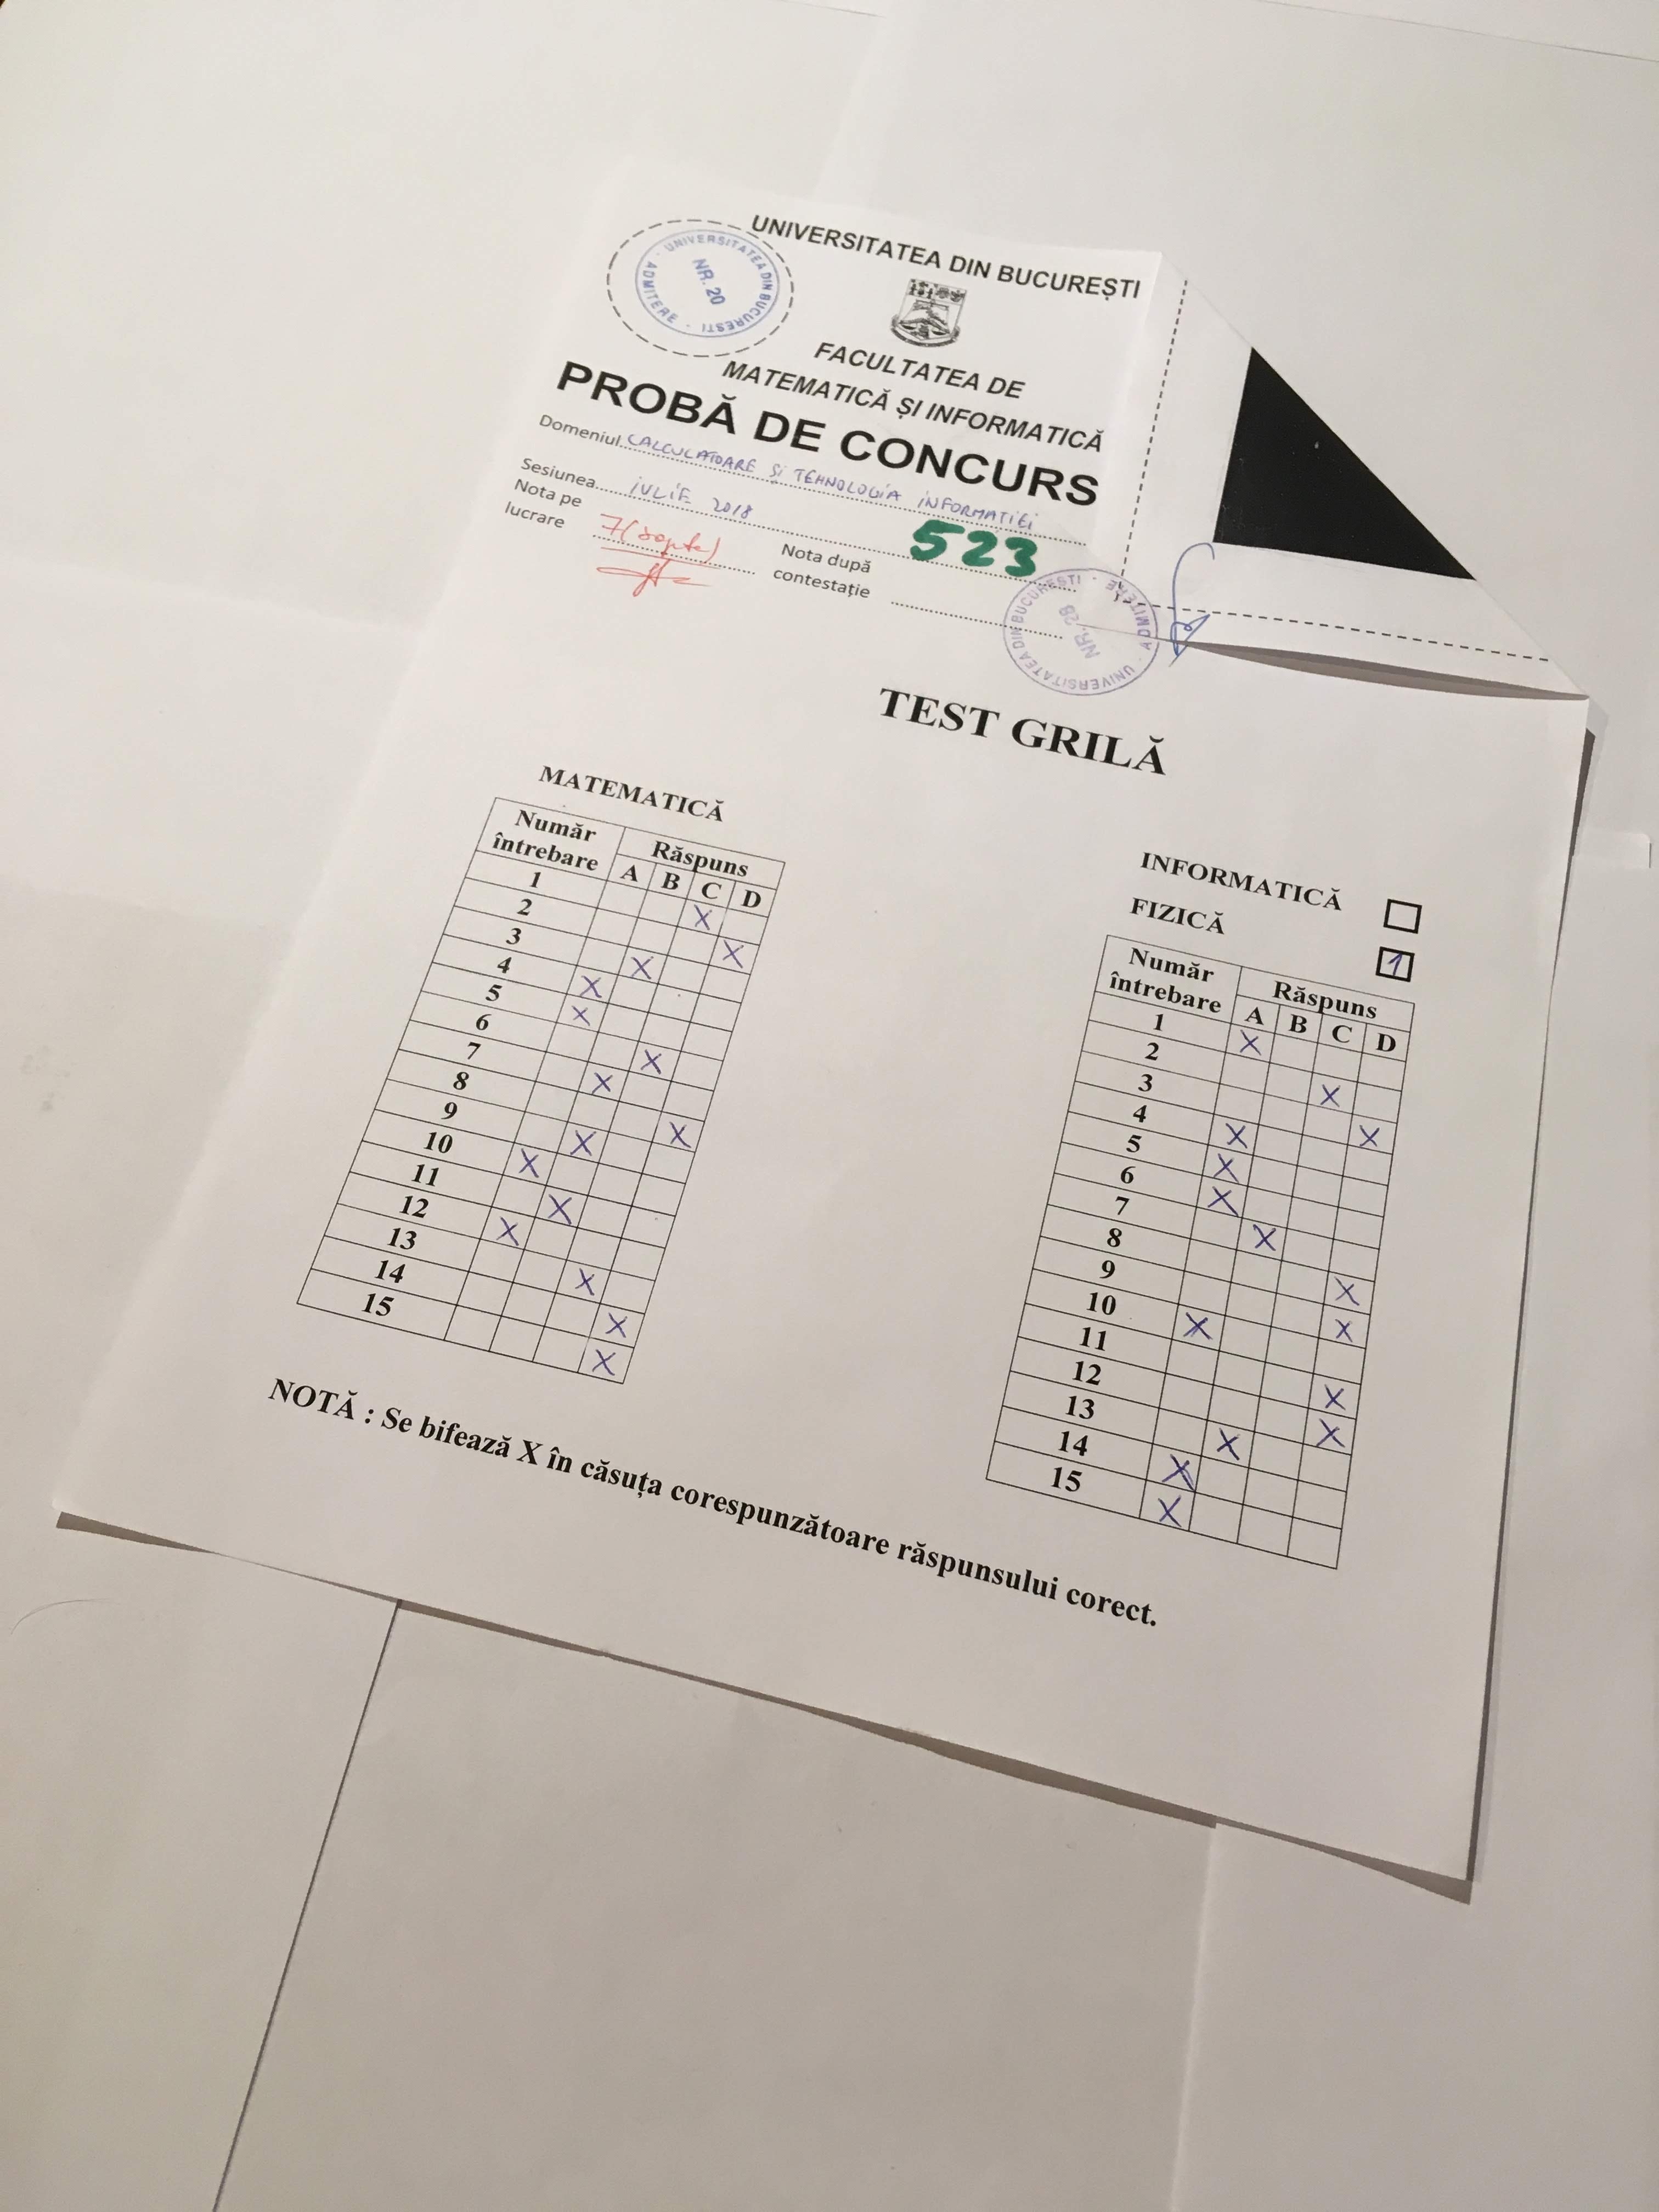 UNIVERSITATEA DIN BUCUREȘTI
ADMITERE · UNIVERSITATEA DIN BUCURESTI ·
NR. 20
FACULTATEA DE
MATEMATICĂ ȘI INFORMATICĂ
PROBĂ DE CONCURS
Domeniul CALCULATOARE ȘI TEHNOLOGIA INFORMAȚIEI
Sesiunea IULIE 2018
Nota pe
lucrare 7 (șapte)
Nota după
contestație
523
ADMITERE · UNIVERSITATEA DIN BUCURESTI ·
NR. 28
TEST GRILĂ
MATEMATICĂ
Număr
întrebare
Răspuns
A B C D
1 X
2 X
3 X
4 X
5 X
6 X
7 X
8 X
9 X
10 X
11 X
12 X
13 X
14 X
15 X
INFORMATICĂ
FIZICĂ 1
Număr
întrebare
Răspuns
A B C D
1 X
2 X
3 X
4 X
5 X
6 X
7 X
8 X
9 X
10 X
11 X
12 X
13 X
14 X
15 X
NOTĂ : Se bifează X în căsuța corespunzătoare răspunsului corect.